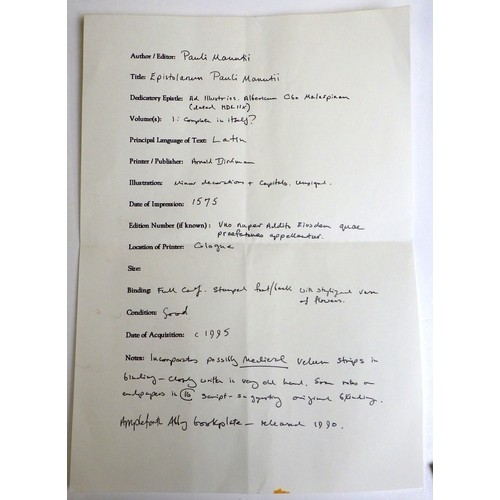 Author / Editor: Pauli Manutii
Title: Epistolarum Pauli Manutii
Dedicatory Epistle: Ad Illustriss. Albericum Cibo Malaspinam
(dated MDLIIX)
Volume(s): 1: complete in itself?
Principal Language of Text: Latin
Printer / Publisher: Arnold Birckman
Illustration: Minor decorations + Capitals. Unsigned.
Date of Impression: 1575
Edition Number (if known): Uno nuper Addito Eiusdem quae
praefationes appellantur.
Location of Printer: Cologne
Size:
Binding: Full Calf. Stamped front/back with stylized vase
of flowers.
Condition: Good
Date of Acquisition: c 1995
Notes: Incorporates possibly Medieval velum strips in
binding - closely written in very old hand. Some notes on
endpapers in 16 script - suggesting original binding.
Ampleforth Abbey bookplate - released 1990.